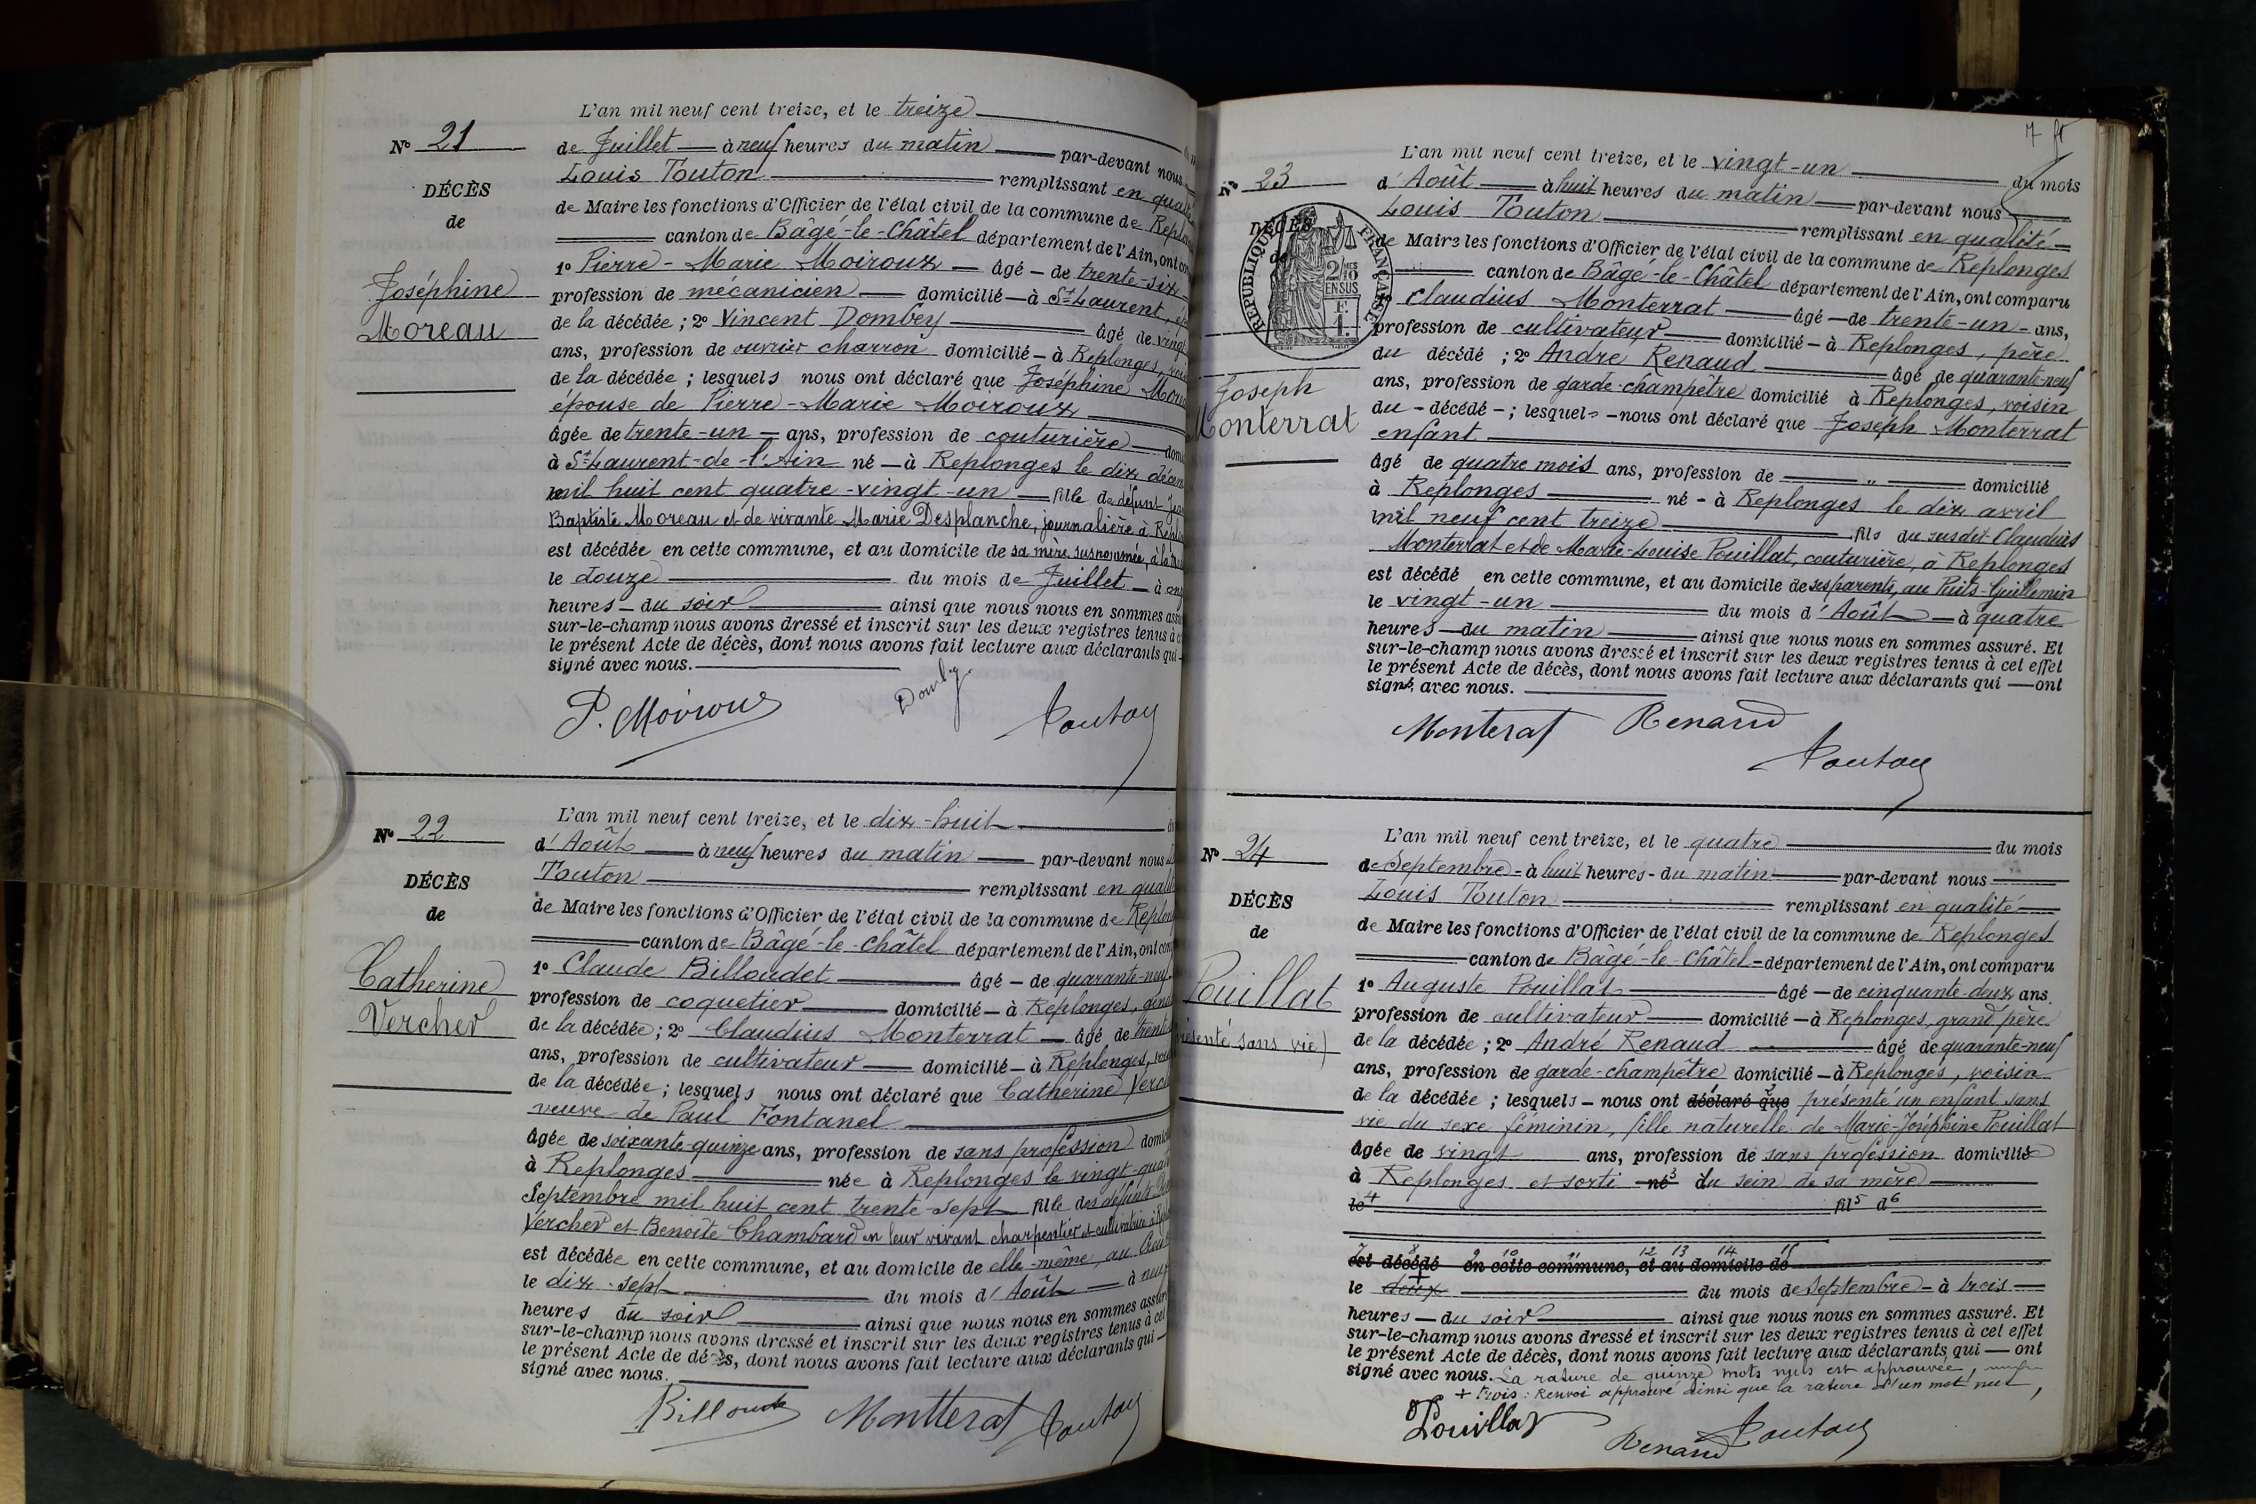 L'an mil neuf cent treize, et le treize
N° 21
de Juillet à neuf heures du matin par-devant nous
Louis Touton remplissant en qualité
de Maire les fonctions d'Officier de l'état civil de la commune de
canton de Bâgé-le-Châtel département de l'Ain, ont
1° Pierre-Marie Moiroux âgé de trente-six
profession de mécanicien domicilié à St Laurent
de la décédée; 2° Vincent Dombey âgé de vingt
ans, profession de ouvrier charron domicilié à Replonges,
de la décédée; lesquels nous ont déclaré que Joséphine
épouse de Pierre-Marie Moiroux
âgée de trente-un ans, profession de couturière
à St Laurent-de-l'Ain né à Replonges le dix
mil huit cent quatre-vingt-un fille de défunt
Baptiste Moreau et de vivante Marie Desplanche, journalière à
est décédée en cette commune, et au domicile de sa mère susnommée,
le douze du mois de Juillet à
heures du soir ainsi que nous nous en sommes
sur-le-champ nous avons dressé et inscrit sur les deux registres tenus à
le présent Acte de décès, dont nous avons fait lecture aux déclarants qui
signé avec nous.
DÉCÈS
de
Joséphine
Moreau
P. Moiroux Dombey Touton
L'an mil neuf cent treize, et le dix-huit
N° 22
d'Août à neuf heures du matin par-devant nous
Touton remplissant en qualité
de Maire les fonctions d'Officier de l'état civil de la commune de
canton de Bâgé-le-Châtel département de l'Ain, ont
1° Claude Billoudet âgé de quarante-neuf
profession de coquetier domicilié à Replonges,
de la décédée; 2° Claudius Monterrat âgé de
ans, profession de cultivateur domicilié à Replonges,
de la décédée; lesquels nous ont déclaré que Catherine
veuve de Paul Fontanel
âgée de soixante-quinze ans, profession de sans profession
à Replonges née à Replonges le
Septembre mil huit cent trente-sept fille des défunts
Vercher et Benoîte Chambard en leur vivant charpentier et cultivatrice à
est décédée en cette commune, et au domicile de elle-même, au
le dix-sept du mois d'Août à
heures du soir ainsi que nous nous en sommes
sur-le-champ nous avons dressé et inscrit sur les deux registres tenus à cet
le présent Acte de décès, dont nous avons fait lecture aux déclarants qui
signé avec nous.
DÉCÈS
de
Catherine
Vercher
Billoudet Montterat Touton
L'an mil neuf cent treize, et le vingt-un du mois
N° 23
d'Août à huit heures du matin par-devant nous
Louis Touton remplissant en qualité
de Maire les fonctions d'Officier de l'état civil de la commune de Replonges
canton de Bâgé-le-Châtel département de l'Ain, ont comparu
1° Claudius Monterrat âgé de trente-un ans,
profession de cultivateur domicilié à Replonges, père
du décédé; 2° André Renaud âgé de quarante-neuf
ans, profession de garde-champêtre domicilié à Replonges, voisin
du décédé; lesquels nous ont déclaré que Joseph Monterrat
enfant
âgé de quatre mois ans, profession de „ domicilié
à Replonges né à Replonges le dix avril
mil neuf cent treize fils du susdit Claudius
Monterrat et de Marie-Louise Pouillat, couturière, à Replonges
est décédé en cette commune, et au domicile de ses parents, au Puits-Guillemin
le vingt-un du mois d'Août à quatre
heures du matin ainsi que nous nous en sommes assuré. Et
sur-le-champ nous avons dressé et inscrit sur les deux registres tenus à cet effet
le présent Acte de décès, dont nous avons fait lecture aux déclarants qui ont
signé avec nous.
DÉCÈS
de
RÉPUBLIQUE FRANÇAISE
2/10
EN SUS
Joseph
Monterrat
Monterat Renaud
Touton
L'an mil neuf cent treize, et le quatre du mois
N° 24
de Septembre à huit heures du matin par-devant nous
Louis Touton remplissant en qualité
de Maire les fonctions d'Officier de l'état civil de la commune de Replonges
canton de Bâgé-le-Châtel département de l'Ain, ont comparu
1° Auguste Pouillat âgé de cinquante-deux ans.
profession de cultivateur domicilié à Replonges, grand père
de la décédée; 2° André Renaud âgé de quarante-neuf
ans, profession de garde-champêtre domicilié à Replonges, voisin
de la décédée; lesquels nous ont déclaré que présenté un enfant sans
vie du sexe féminin, fille naturelle de Marie-Joséphine Pouillat
âgée de vingt ans, profession de sans profession domicilié
à Replonges et sorti né 3 du sein de sa mère
le 4 fil 5 d 6
est décédé en cette commune, et au domicile de
le deux du mois de Septembre à trois
heures du soir ainsi que nous nous en sommes assuré. Et
sur-le-champ nous avons dressé et inscrit sur les deux registres tenus à cet effet
le présent Acte de décès, dont nous avons fait lecture aux déclarants qui ont
signé avec nous. La rature de quinze mots nuls est approuvée,
+ trois : Renvoi approuvé ainsi que la rature d'un mot nul,
DÉCÈS
de
Pouillat
sans vie)
Pouillat Renaud Touton